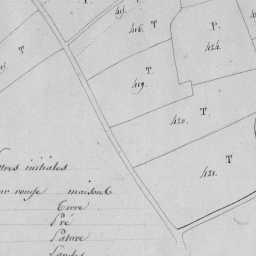 T
416.
T
P.
424.
T
T
419.
T
420.
T
421.
initiales
rouge maisons &
Terre
Pré
Pature
Landes